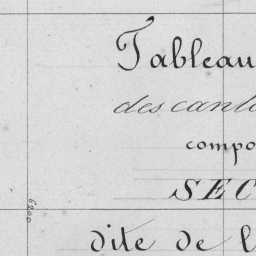 Tableau
des canto
compo
SEC
dite de l
6200